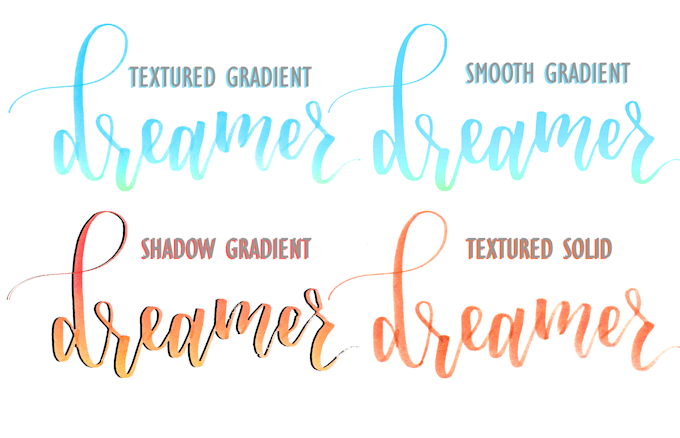 TEXTURED GRADIENT
dreamer
SMOOTH GRADIENT
dreamer
SHADOW GRADIENT
dreamer
TEXTURED SOLID
dreamer